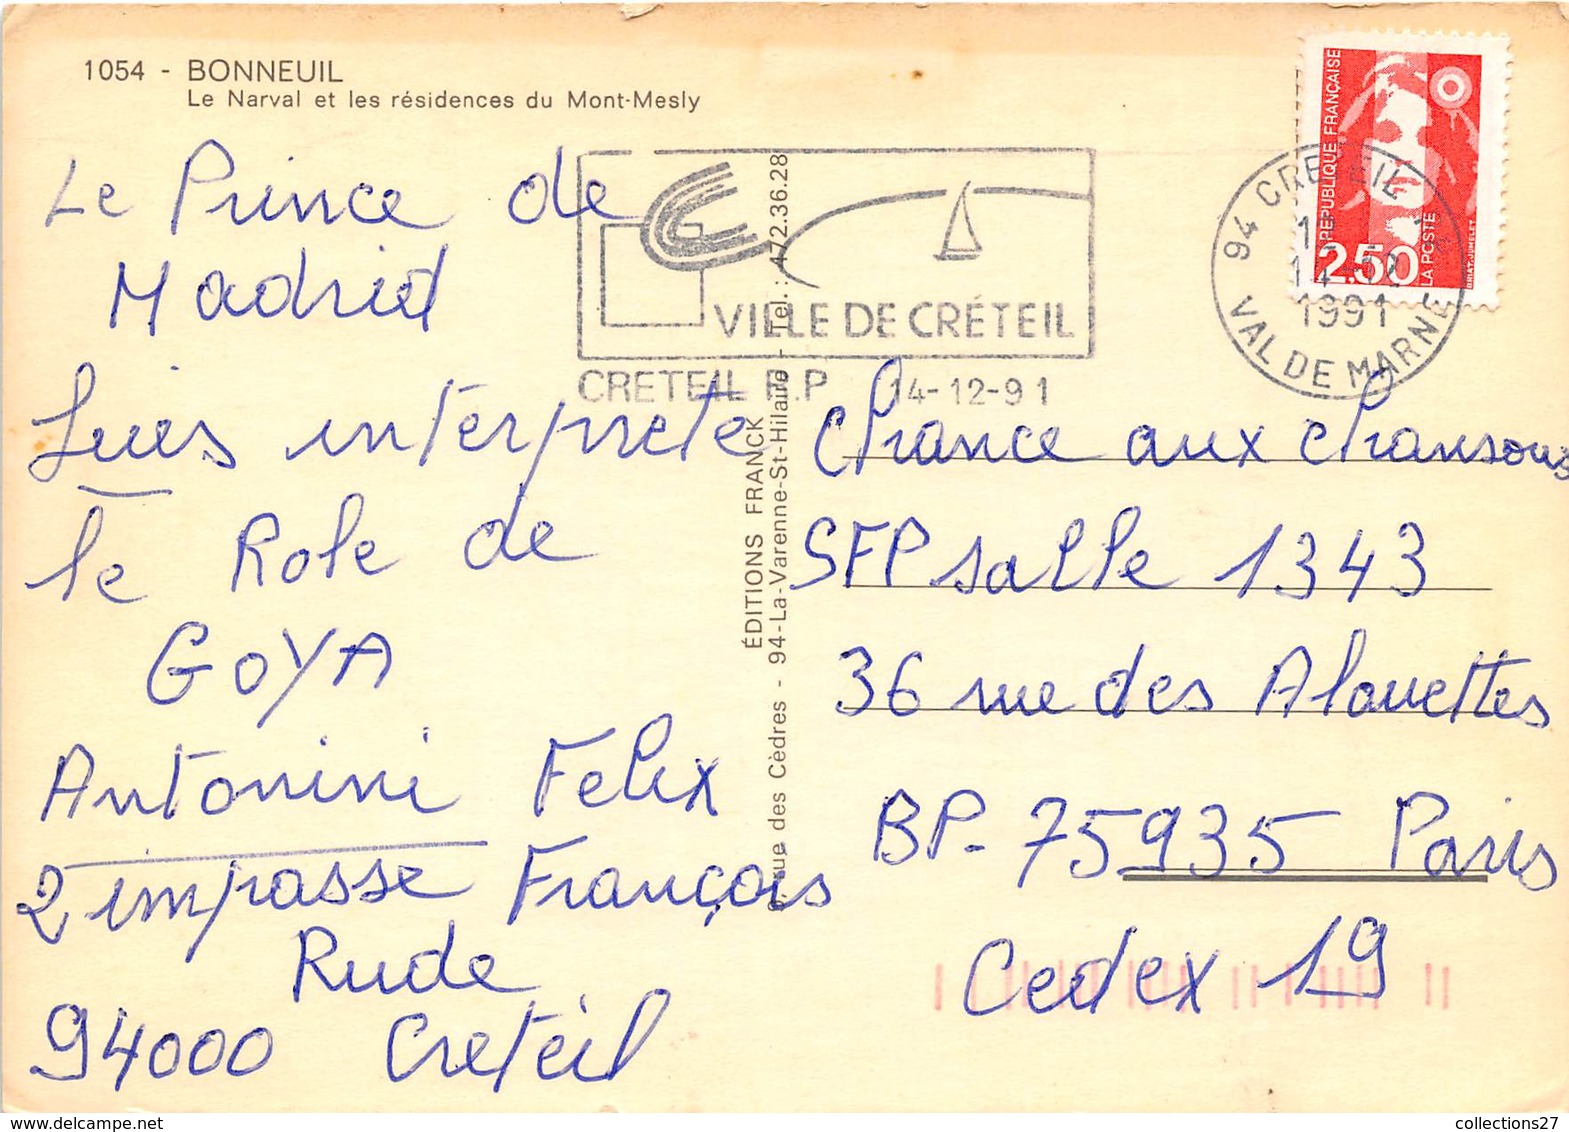 1054 - BONNEUIL
Le Narval et les résidences du Mont-Mesly
Le Prince de
Madrid
Luis interprete
le Role de
GOYA
Antonini Felix
2 impasse François
Rude
94000 Creteil
ÉDITIONS FRANCK
rue des Cèdres - 94-La-Varenne-St-Hilaire - Tel. : 472.36.28
VILLE DE CRÉTEIL
CRETEIL R.P 14-12-91
RÉPUBLIQUE FRANÇAISE
2,50
LA POSTE
94 CRETEIL
1991
VAL DE MARNE
Chance aux chansons
SFP salle 1343
36 rue des Alouettes
BP- 75935 Paris
Cedex 19
collections27